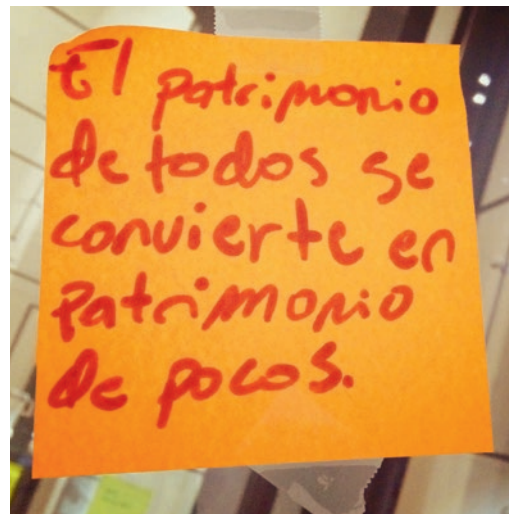 El patrimonio
de todos se
convierte en
patrimonio
de pocos.